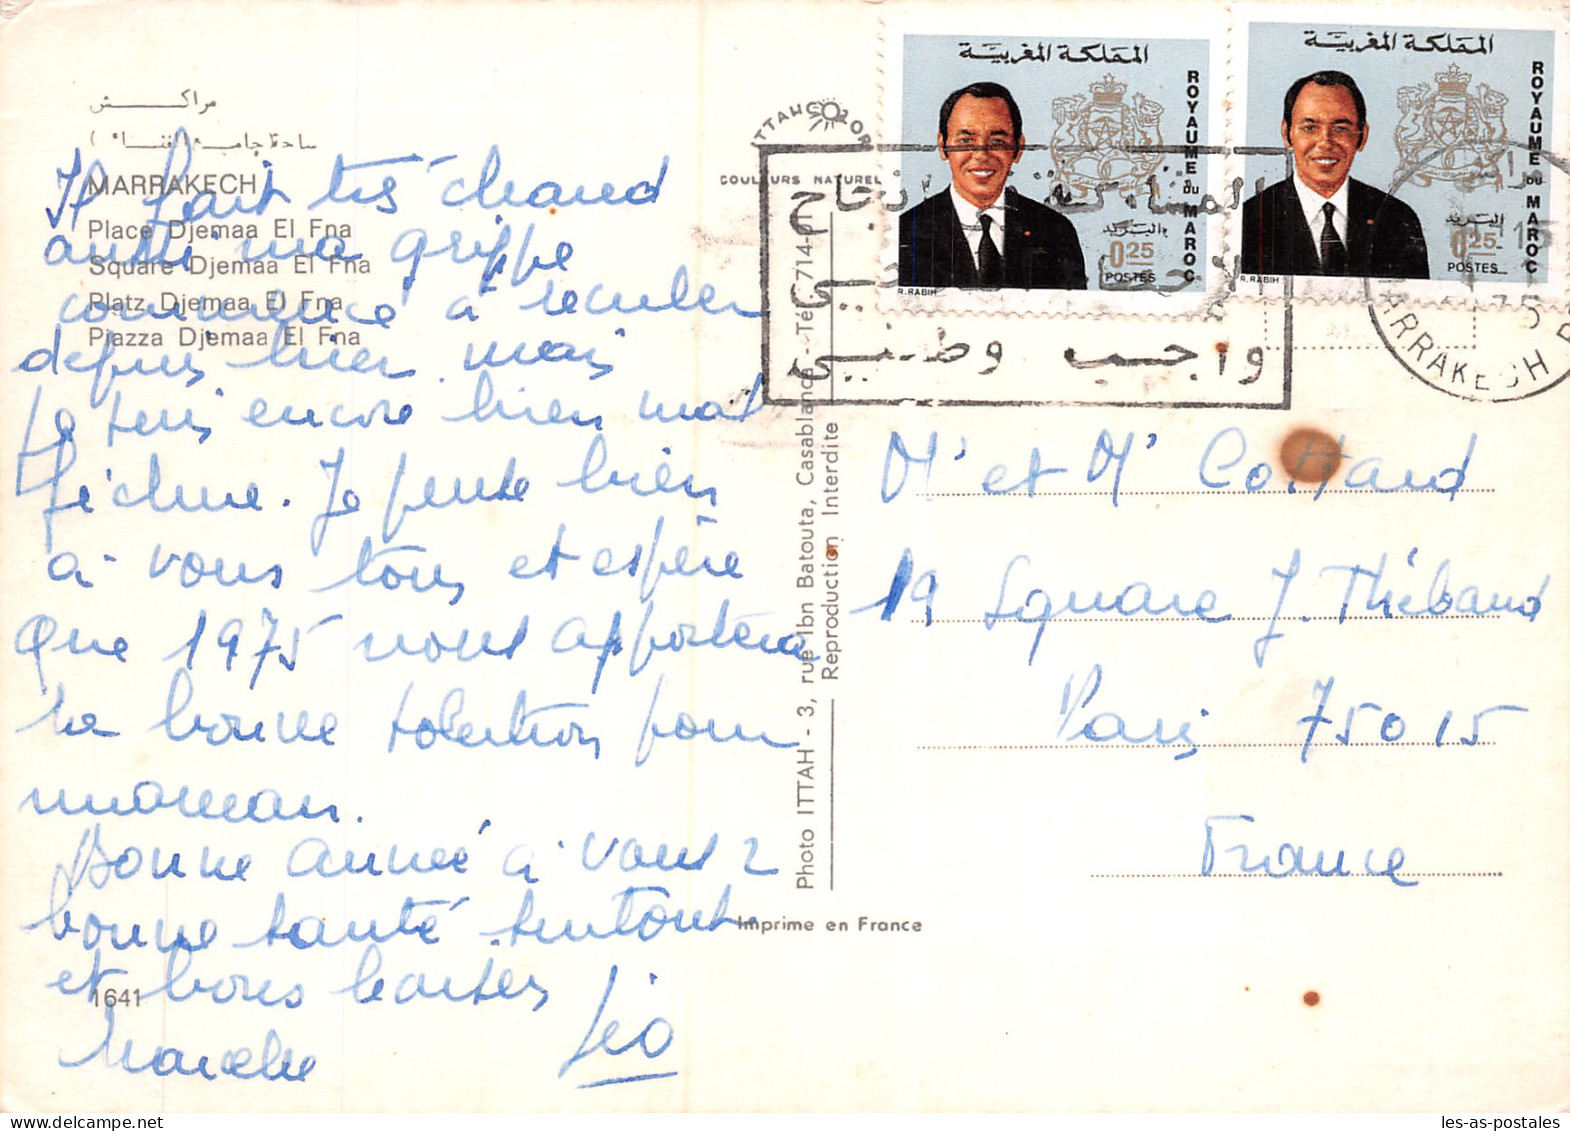 مراكش
ساحة جامع الفناء
MARRAKECH
Place Djemaa El Fna
Square Djemaa El Fna
Platz Djemaa El Fna
Piazza Djemaa El Fna
Il fait très chaud
aussi ma grippe
commence à reculer
depuis hier mais
je suis encore bien mal
fichue. Je pense bien
à vous tous et espère
que 1975 vous apportera
la bonne solution pour
maman.
Bonne année à vous 2
bonne santé surtout
et bons baisers
1641
COULEURS NATUREL
Photo ITTAH - 3, rue Ibn Batouta, Casablanca - Tél. 714-01
Reproduction Interdite
Imprime en France
المملكة المغربية
ROYAUME DU MAROC
البريد
0.25
POSTES
R.RABIH
المملكة المغربية
ROYAUME DU MAROC
البريد
0.25
POSTES
R.RABIH
المشاركة
واجب وطني
MARRAKECH
Mr et Me Cottard
19 Square J. Thébaud
Paris 75015
France
les-as-postales